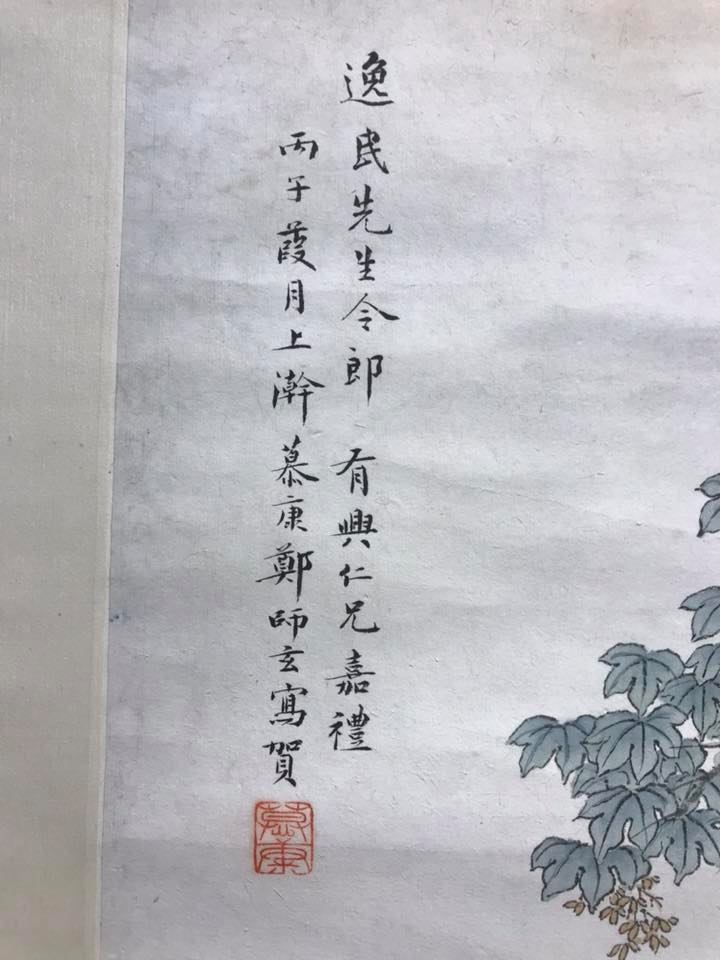 逸民先生令郎 有興仁兄嘉禮
丙子葭月上澣慕康鄭師玄寫賀
慕康